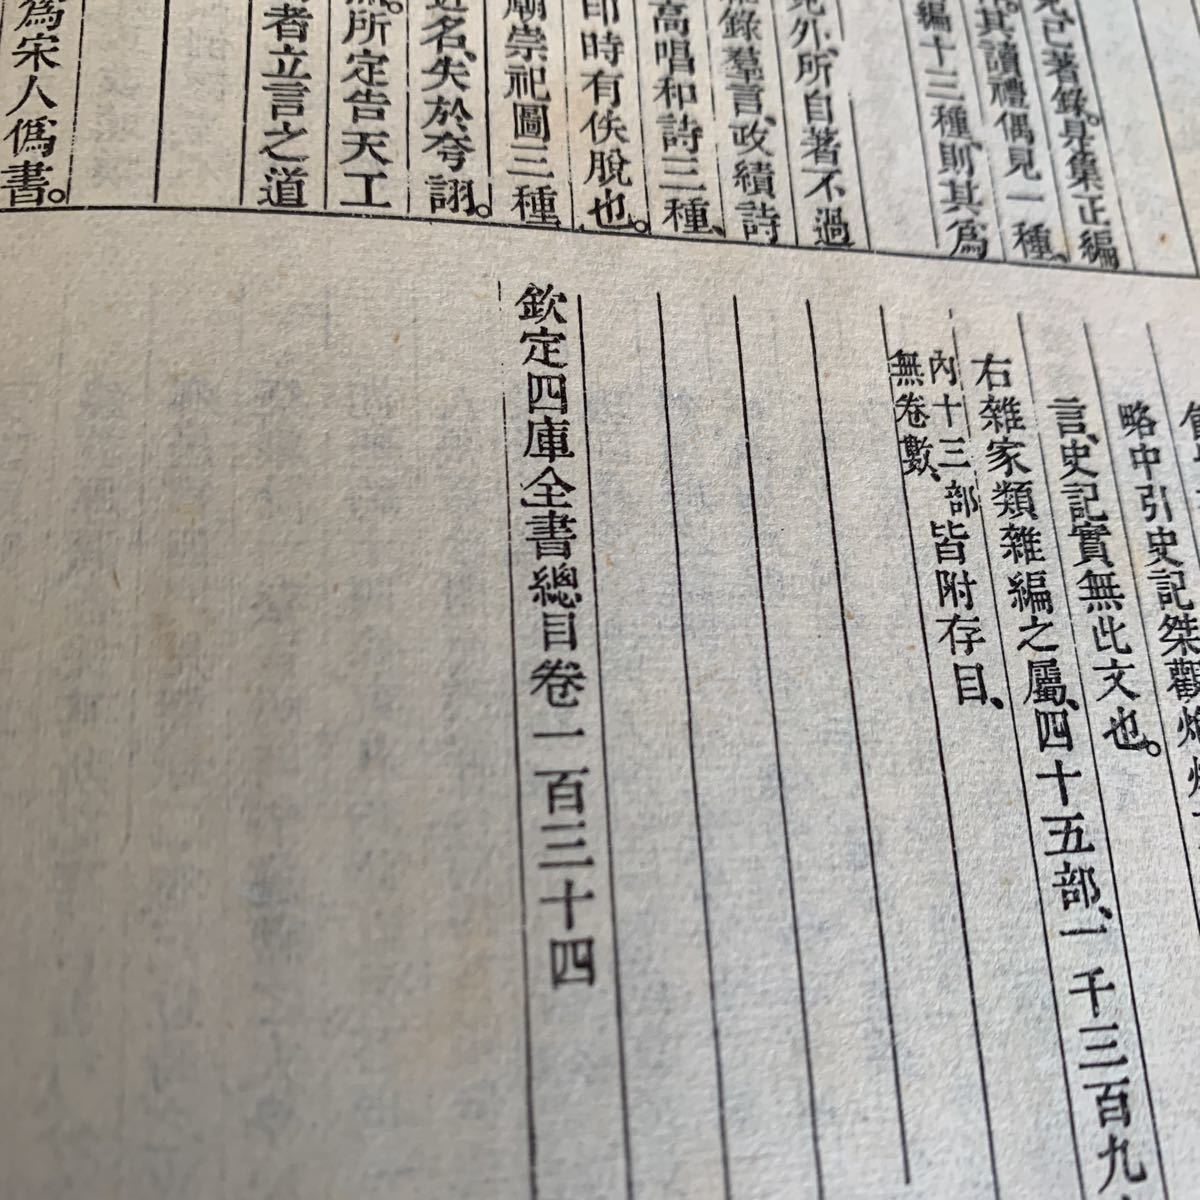 見已著錄是集正編
其讀禮偶見一種、
編十三種、則其為
外、所自著不過
錄羣言、政績詩
高唱和詩三種、
印時有佚脫也。
廟崇祀圖三種
名、失於夸詡。
所定告天工
者立言之道
為宋人偽書。
略中引史記桀觀炮
言、史記實無此文也。
右雜家類雜編之屬、四十五部、一千三百九
內十三部
無卷數、
皆附存目、
欽定四庫全書總目卷一百三十四